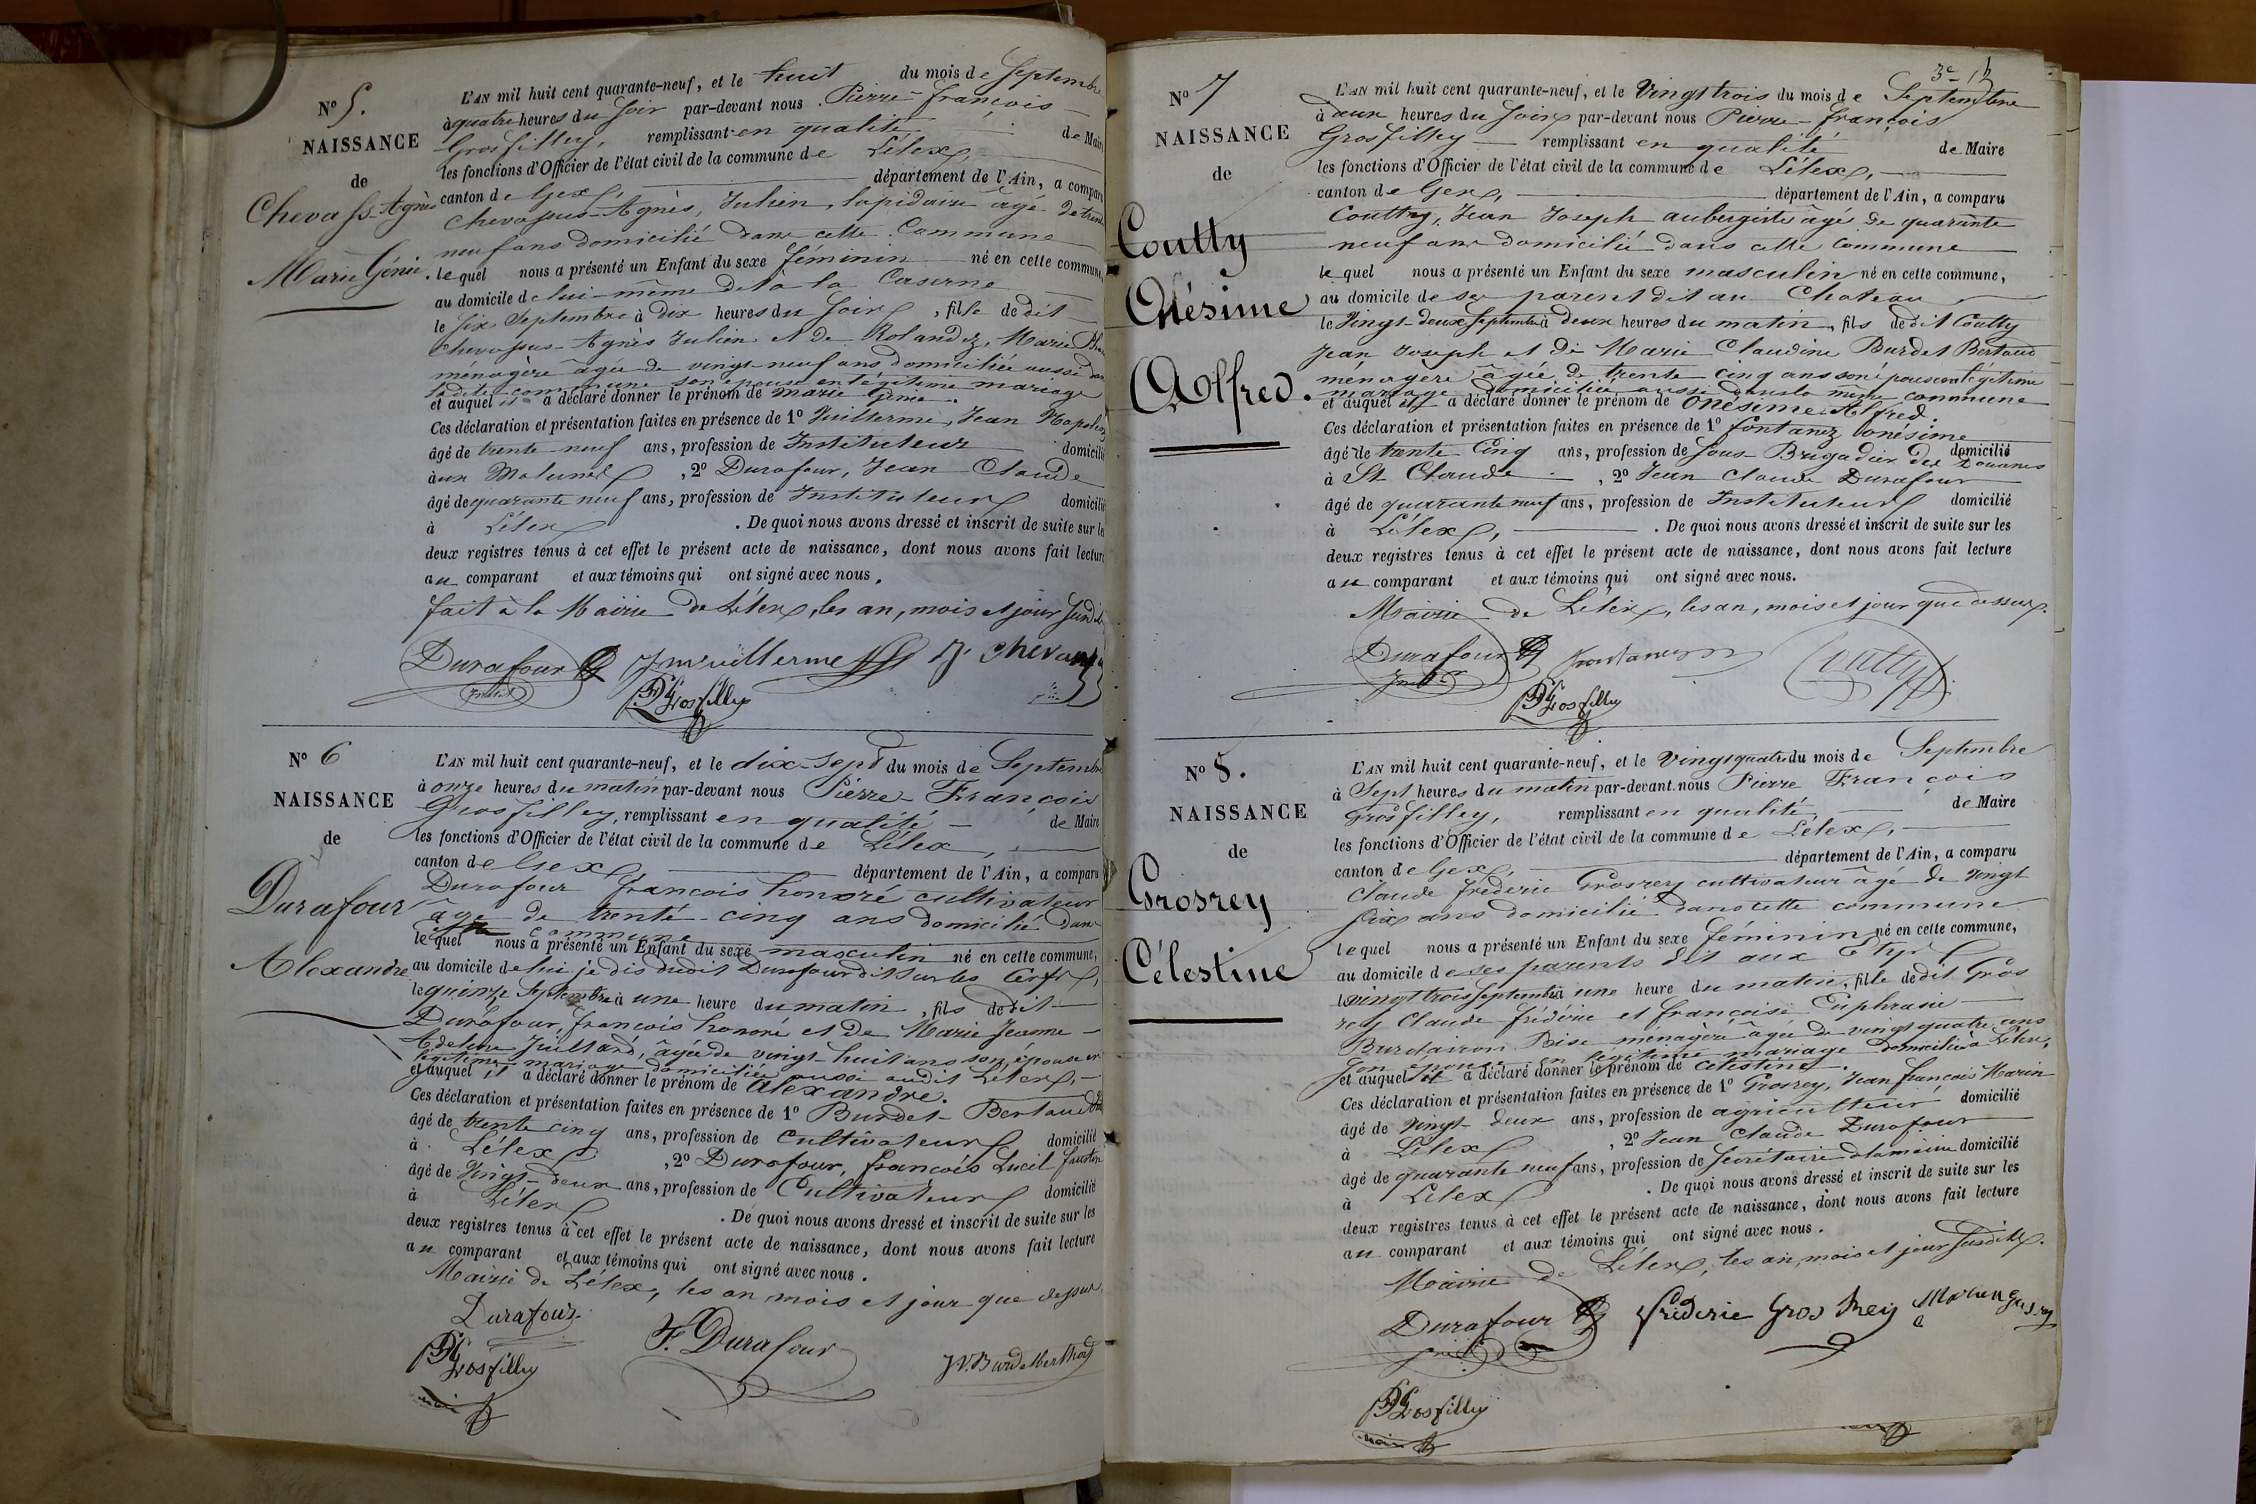 N° 5.
NAISSANCE
de
Chevass-Agnès
Marie Génie.
L'AN mil huit cent quarante-neuf, et le huit du mois de Septembre
à quatre heures du Soir par-devant nous Pierre-François
Grosfilley, remplissant en qualité de Maire
les fonctions d'Officier de l'état civil de la commune de Lélex,
canton de Gex, département de l'Ain, a comparu
Chevassus-Agnès, Julien, lapidaire âgé de trente
neuf ans domicilié dans cette Commune
lequel nous a présenté un Enfant du sexe féminin né en cette commune,
au domicile de lui-même dit à la Caserne
le six Septembre à dix heures du Soir, fille de dit
Chevassus-Agnès Julien et de Rolandez, Marie
ménagère âgée de vingt-neuf ans domiciliée aussi dans
ladite commune son épouse en légitime mariage
et auquel il a déclaré donner le prénom de Marie Génie.
Ces déclaration et présentation faites en présence de 1° Vuillerme, Jean Napoléon
âgé de trente neuf ans, profession de Instituteur domicilié
aux Molunes, 2° Durafour, Jean Claude
âgé de quarante neuf ans, profession de Instituteur domicilié
à Lélex. De quoi nous avons dressé et inscrit de suite sur les
deux registres tenus à cet effet le présent acte de naissance, dont nous avons fait lecture
au comparant et aux témoins qui ont signé avec nous.
fait à la Mairie de Lélex, les an, mois et jour Susdits
Durafour Jn Vuillerme J. Chevassus
Instit
PF Grosfilley
N° 6
NAISSANCE
de
Durafour
Alexandre
L'AN mil huit cent quarante-neuf, et le dix-sept du mois de Septembre
à onze heures du matin par-devant nous Pierre-François
Grosfilley, remplissant en qualité de Maire
les fonctions d'Officier de l'état civil de la commune de Lélex,
canton de Gex, département de l'Ain, a comparu
Durafour françois honoré cultivateur
âgé de trente-cinq ans domicilié dans
commune
lequel nous a présenté un Enfant du sexe masculin né en cette commune,
au domicile de lui je dis dudit Durafour dit sur les Cerfs,
le quinze Septembre à une heure du matin, fils de dit
Durafour, françois honoré et de Marie Jeanne
Adeline Juillard, âgée de vingt huit ans son épouse en
légitime mariage domiciliée aussi audit Lélex,
et auquel il a déclaré donner le prénom de Alexandre.
Ces déclaration et présentation faites en présence de 1° Burdet-Bertaud
âgé de trente cinq ans, profession de Cultivateur domicilié
à Lélex, 2° Durafour, françois Lucil faustin
âgé de Vingt-deux ans, profession de Cultivateur domicilié
à Lélex. De quoi nous avons dressé et inscrit de suite sur les
deux registres tenus à cet effet le présent acte de naissance, dont nous avons fait lecture
au comparant et aux témoins qui ont signé avec nous.
Mairie de Lélex, les an mois et jour que dessus.
Durafour
PF Grosfilley F. Durafour
maire
3e
N° 7
NAISSANCE
de
Coutty
Onésime
Alfred.
L'AN mil huit cent quarante-neuf, et le Vingt trois du mois de Septembre
à deux heures du Soir par-devant nous Pierre-François
Grosfilley remplissant en qualité de Maire
les fonctions d'Officier de l'état civil de la commune de Lélex,
canton de Gex, département de l'Ain, a comparu
Coutty, Jean Joseph aubergiste âgé de quarante
neuf ans domicilié dans cette commune
lequel nous a présenté un Enfant du sexe masculin né en cette commune,
au domicile de ses parent dit au Chateau
le Vingt-deux Septembre à deux heures du matin, fils de dit Coutty
Jean Joseph et de Marie Claudine Burdet Bertaud
ménagère âgée de trente cinq ans son épouse en légitime
mariage domiciliée aussi dans la même commune
et auquel il a déclaré donner le prénom de Onésime-Alfred.
Ces déclaration et présentation faites en présence de 1° fontanez onésime
âgé de trente Cinq ans, profession de Sous-Brigadier des Douanes domicilié
à St Claude, 2° Jean Claude Durafour
âgé de quarante neuf ans, profession de Instituteur domicilié
à Lélex,. De quoi nous avons dressé et inscrit de suite sur les
deux registres tenus à cet effet le présent acte de naissance, dont nous avons fait lecture
au comparant et aux témoins qui ont signé avec nous.
Mairie de Lélex, les an, mois et jour que dessus.
Durafour fontanez Coutty
PF Grosfilley
N° 8.
NAISSANCE
de
Grosrey
Célestine
L'AN mil huit cent quarante-neuf, et le Vingt quatre du mois de Septembre
à Sept heures du matin par-devant nous Pierre François
Grosfilley, remplissant en qualité, de Maire
les fonctions d'Officier de l'état civil de la commune de Lélex,
canton de Gex, département de l'Ain, a comparu
Claude fréderic Grosrey cultivateur âgé de vingt
six ans domicilié dans cette commune
lequel nous a présenté un Enfant du sexe féminin né en cette commune,
au domicile de ses parents dit aux
le vingt trois Septembre à une heure du matin, fille de dit Gros
rey Claude fréderic et françoise Euphrasie
Burdairon Bise ménagère âgée de vingt quatre ans
Son épouse en légitime mariage domiciliée à Lélex,
et auquel il a déclaré donner le prénom de Célestine.
Ces déclaration et présentation faites en présence de 1° Grosrey, Jean François Marin
âgé de Vingt-deux ans, profession de agriculteur domicilié
à Lélex, 2° Jean Claude Durafour
âgé de quarante neuf ans, profession de Secrétaire de la mairie domicilié
à Lélex. De quoi nous avons dressé et inscrit de suite sur les
deux registres tenus à cet effet le présent acte de naissance, dont nous avons fait lecture
au comparant et aux témoins qui ont signé avec nous.
Mairie de Lélex, les an, mois et jour susdits.
Durafour fréderic Gros Rey Marin
PF Grosfilley
maire